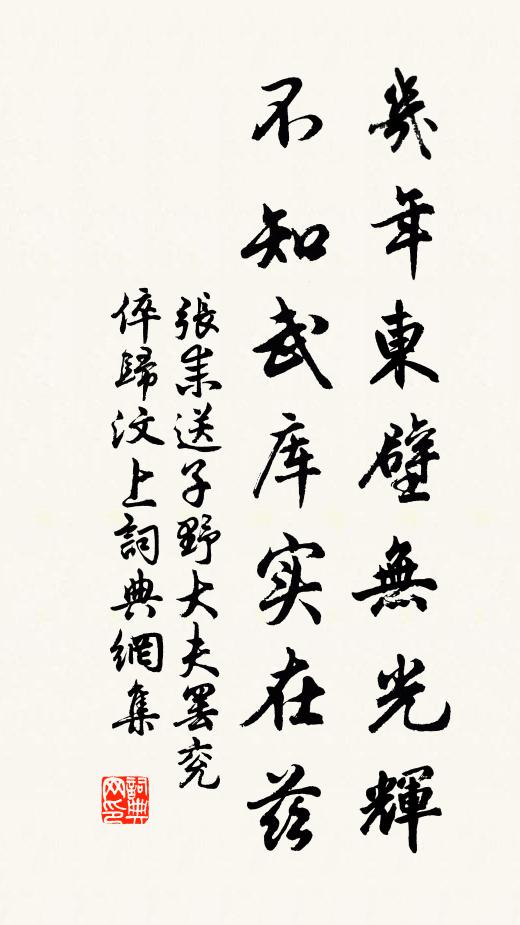 幾年東壁無光輝
不知武库实在兹
張耒送子野大夫罢兖
倅歸汶上詞典網集
詞典网印